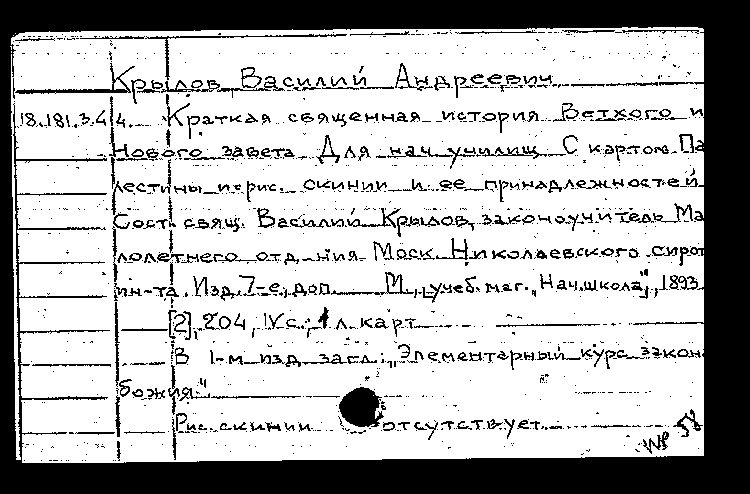 Крылов, Василий Андреевич
18.181.3.44. Краткая священная история Ветхого и
Нового завета Для нач. училищ С картою Па
лестины и рис. скинии и ее принадлежностей
Сост. свящ. Василий Крылов, законоучитель Ма
лолетнего отд-ния Моск. Николаевского сирот
ин-та. Изд. 7-е, доп. М., учеб. маг. „Нач. школа", 1893
[2], 204, IV с.; 1 л. карт
В 1-м изд. загл.: „Элементарный курс закона
божия"
Рис. скинии отсутствует
58